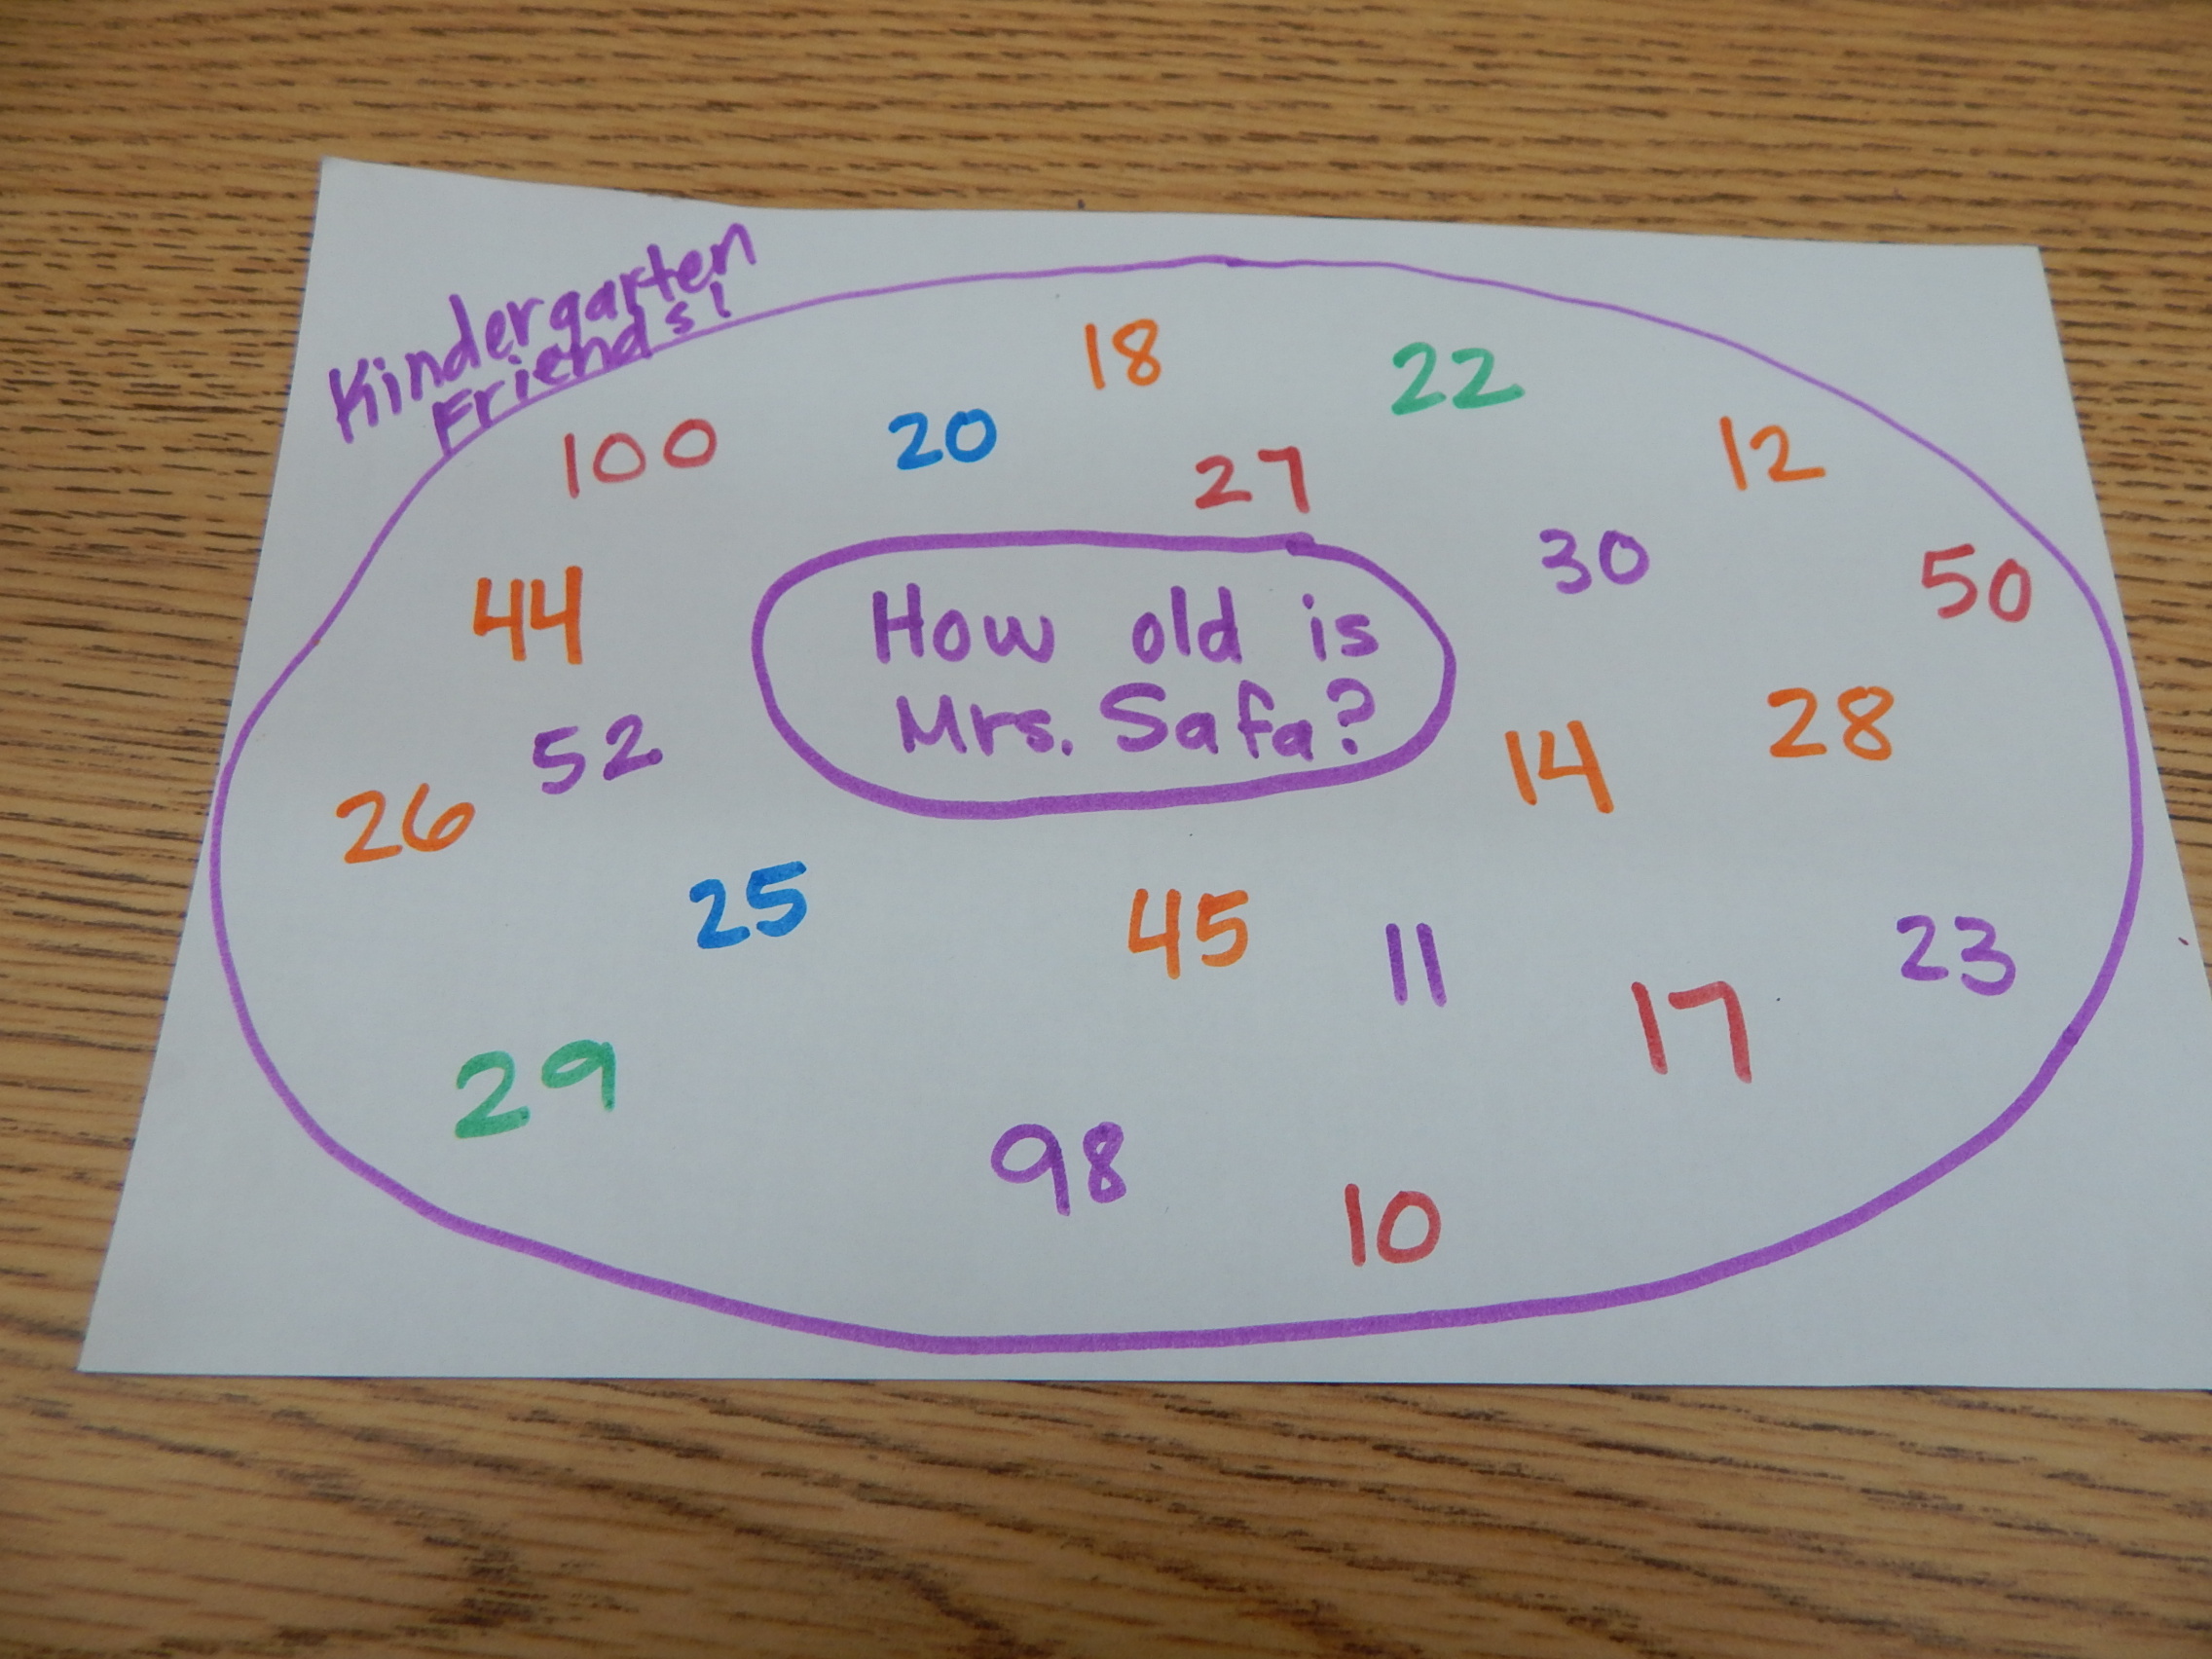 Kindergarten
Friends!
18 22
100 20 27 12
44 30 50
How old is
Mrs. Safa?
26 52 14 28
25 45 11 23
29 17
98 10